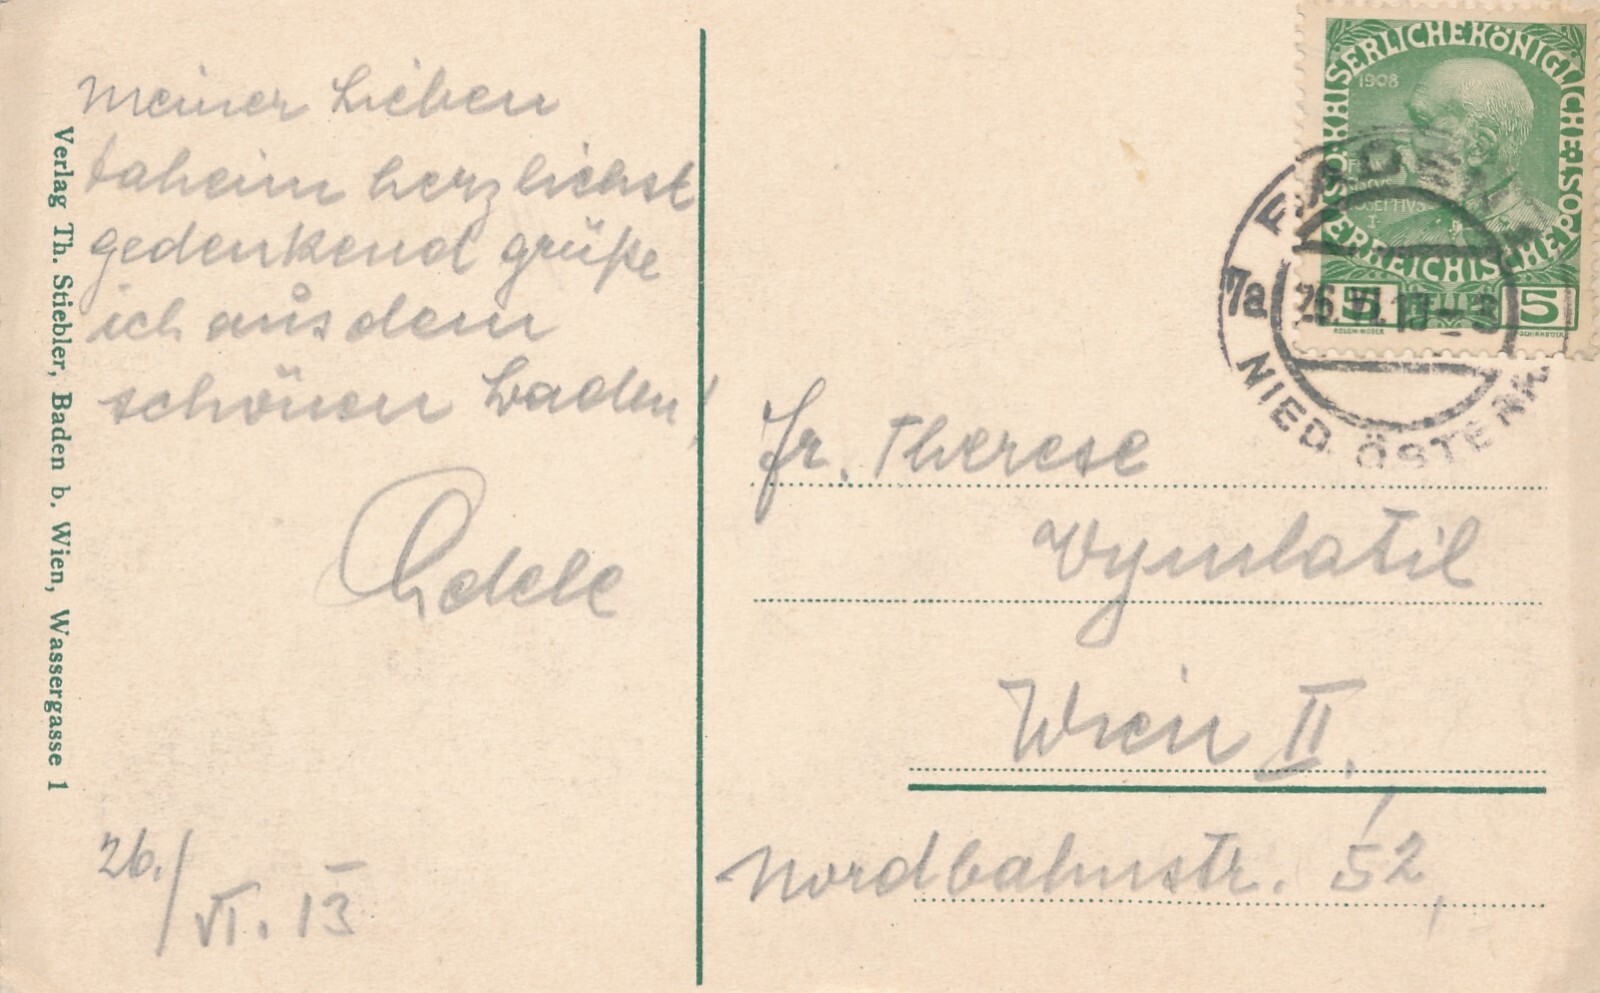 Meiner Lieben
daheim herzlichst
gedenkend grüße
ich aus dem
schönen Baden!
Adele
26./VI. 13
Verlag Th. Stiebler, Baden b. Wien, Wassergasse 1
KAISERLICHE KÖNIGLICHE ÖSTERREICHISCHE POST
1908
5 HELLER 5
BADEN
7a 26.VI.13
NIED. ÖSTERR.
Fr. Therese
Vymlatil
Wien II.
Nordbahnstr. 52,